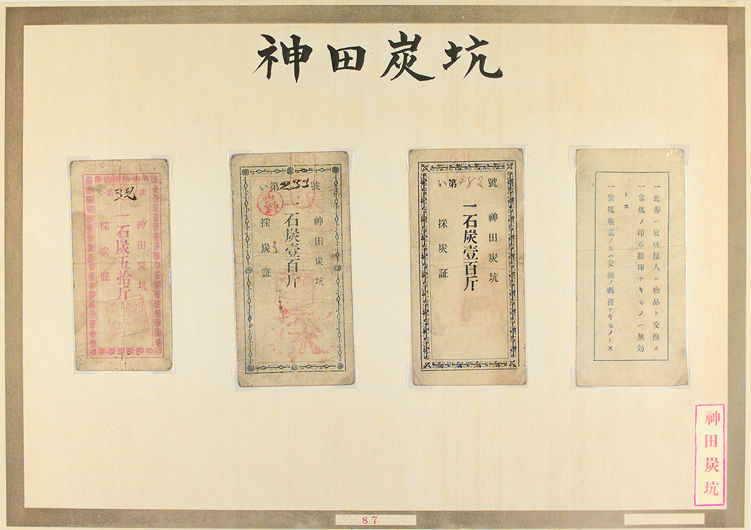 神田炭坑
第32號
神田炭坑
一石炭五拾斤
採炭証
い第233號
神田炭坑
一石炭壹百斤
採炭証
い第號
神田炭坑
一石炭壹百斤
採炭証
一此券ハ當坑稼人ニ物品ト交換ス
一當坑ノ印章捨印ナキモノハ無効
トス
一當坑廢業ノ節ハ交換ノ義務ナキモノトス
神田炭坑
87